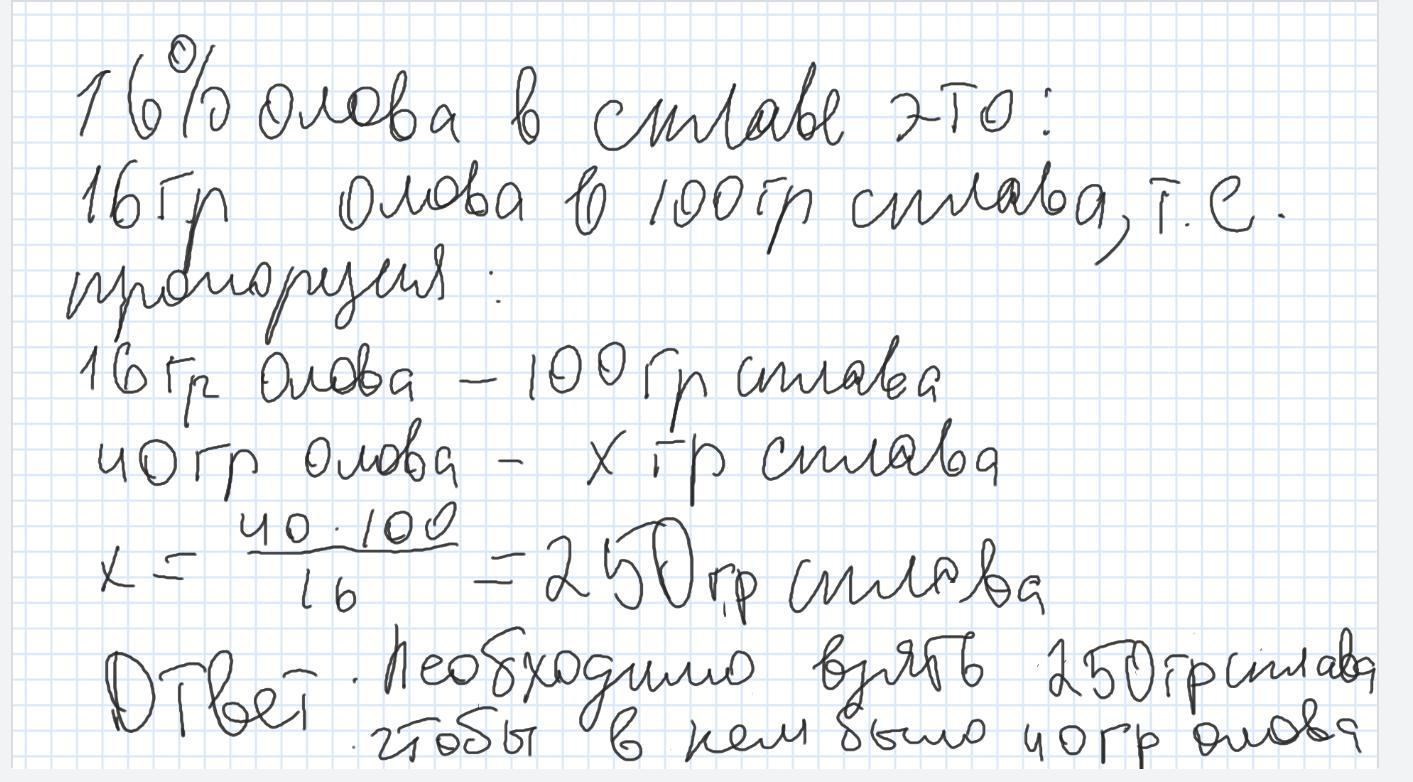 16% олова в сплаве это:
16 гр олова в 100 гр сплава, т.е.
пропорция:
16 гр олова – 100 гр сплава
40 гр олова – x гр сплава
x = 40 · 100 / 16 = 250 гр сплава
Ответ. Необходимо взять 250 гр сплава
чтобы в нем было 40 гр олова